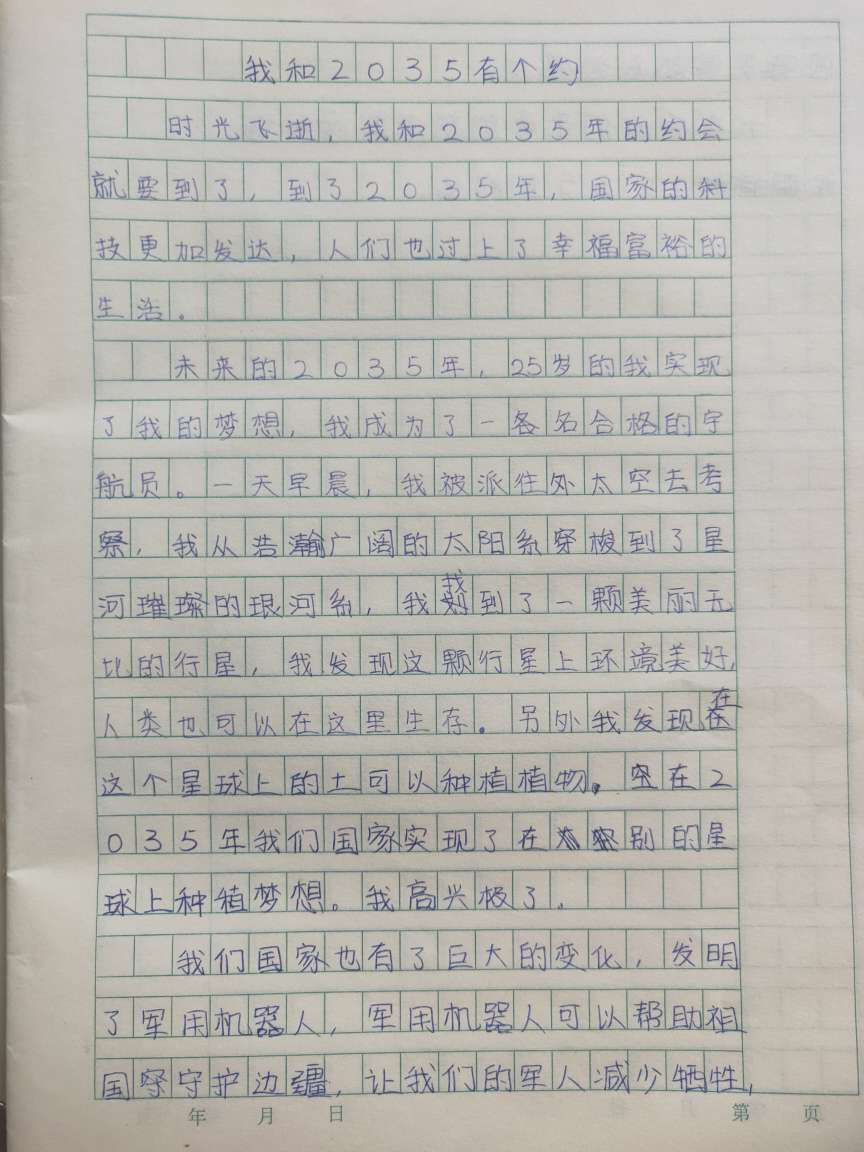 我和2035有个约
时光飞逝，我和2035年的约会
就要到了，到了2035年，国家的科
技更加发达，人们也过上了幸福富裕的
生活。
未来的2035年，25岁的我实现
了我的梦想，我成为了一各名合格的宇
航员。一天早晨，我被派往外太空去考
察，我从浩瀚广阔的太阳系穿梭到了星
河璀璨的银河系，我找到了一颗美丽无
比的行星，我发现这颗行星上环境美好，
人类也可以在这里生存。另外我发现在
这个星球上的土可以种植植物。在2
035年我们国家实现了在别的星
球上种植梦想。我高兴极了。
我们国家也有了巨大的变化，发明
了军用机器人，军用机器人可以帮助祖
国守护边疆，让我们的军人减少牺牲，
年 月 日 第 页